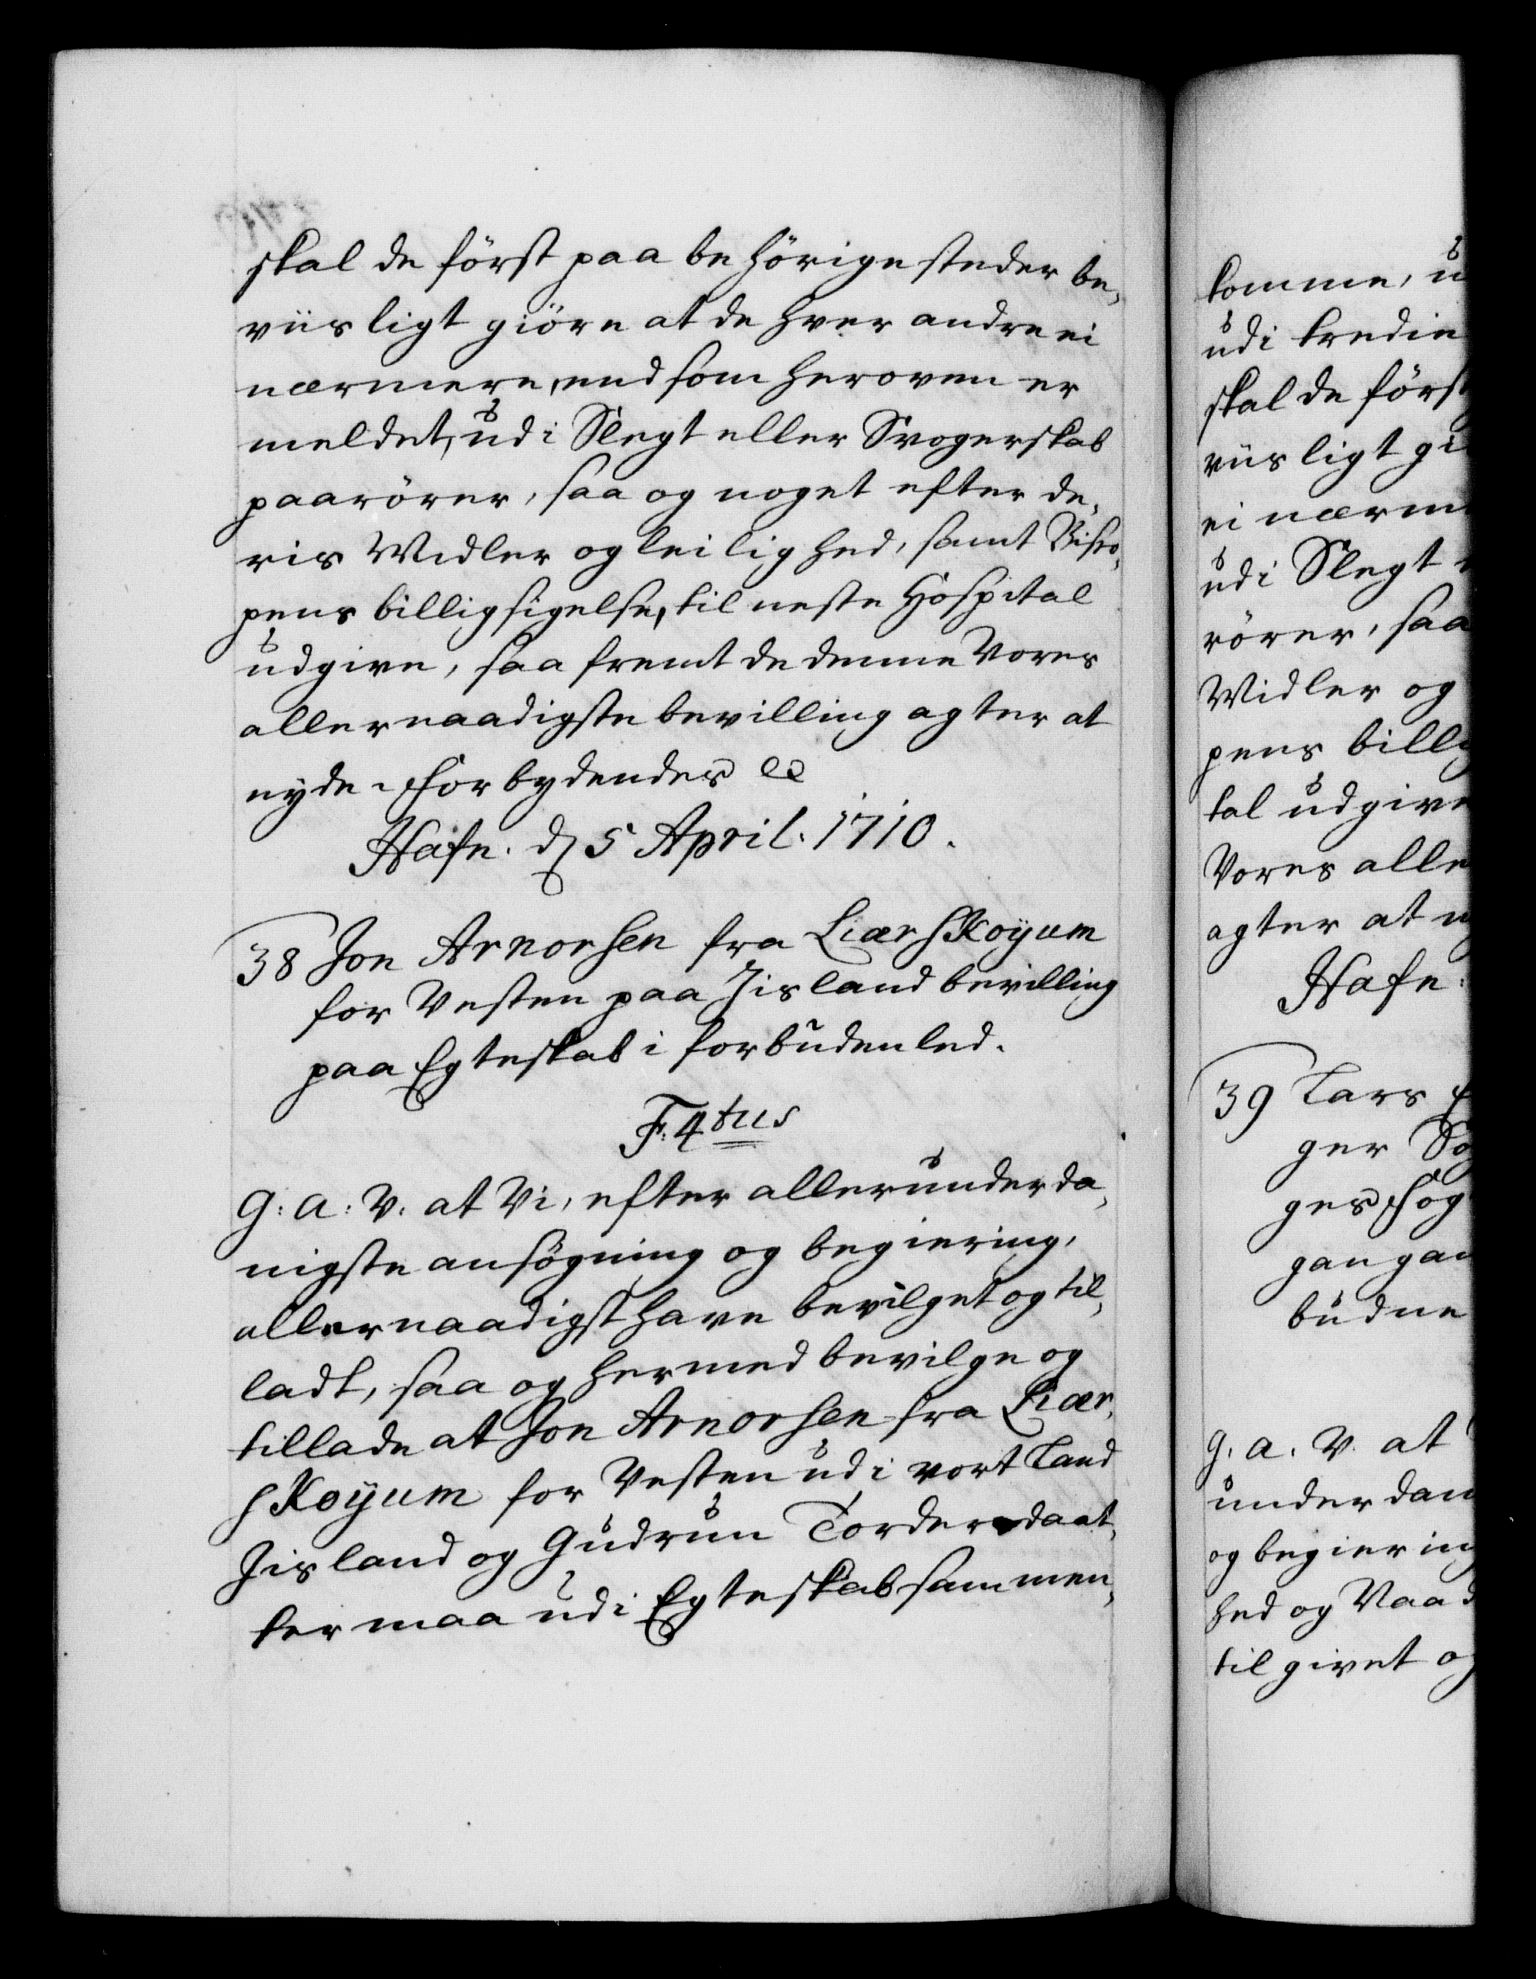 skal de först paa behörige steder be,
viisligt giöre at de hver andre ei
nærmere, end som heroven er
meldet, udi Slegt eller Svogerskab
paarörer, saa og noget efter de,
ris Midler og leilighed, samt Bisco,
pens billigsigelse, til neste Hospital
udgive, saa fremt de denne Vores
allernaadigste bevilling agter at
nyde. Forbydendes &c
Hafn. d 5 April. 1710.
38 Jon Arnorsen fra Liærskoÿum
for Vesten paa Jisland bevilling
paa Egteskab i forbuden led.
F: 4tus
G: A: V: at Vi, efter allerunderda,
nigste ansögning og begiering,
allernaadigst have bevilget og til,
ladt, saa og hermed bevilge og
tillade at Jon Arnorsen fra Liær,
skoÿum for Vesten udi vort Land
Jisland og Gudrun Torder daat,
ter maa udi Egteskab sammen,
komme, u
udi tredie
skal de först
viisligt gi
ei nærm
udi Slegt
rörer, saa
Midler og
pens billig
tal udgive
Vores alle
agter at n
Hafn:
39 Lars
ger So
ges Fog
gangan
budne
G. A. V. at
underdan
og begiering
hed og Naad
tilgivet og